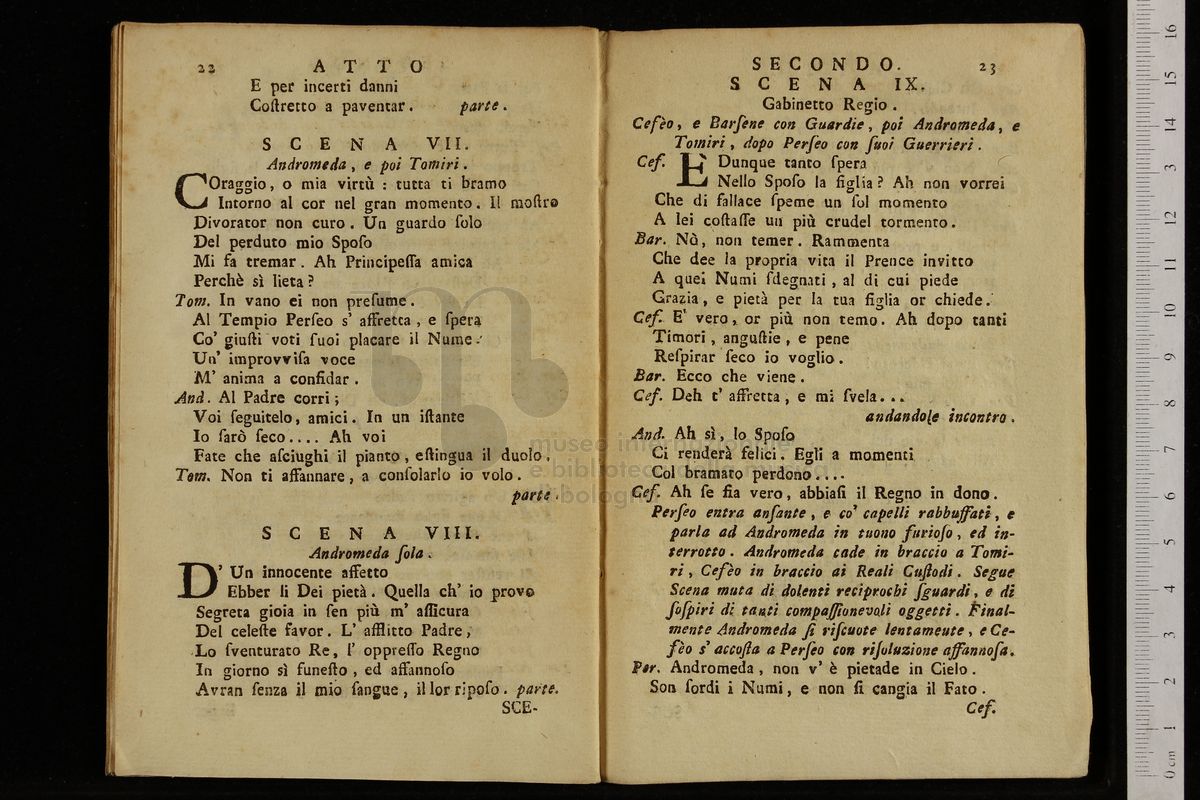 22 ATTO
E per incerti danni
Coſtretto a paventar. parte.
SCENA VII.
Andromeda, e poi Tomiri.
COraggio, o mia virtù : tutta ti bramo
Intorno al cor nel gran momento. Il moſtro
Divorator non curo. Un guardo ſolo
Del perduto mio Spoſo
Mi fa tremar. Ah Principeſſa amica
Perchè sì lieta?
Tom. In vano ei non preſume.
Al Tempio Perſeo s' affretta, e ſpera
Co' giuſti voti ſuoi placare il Nume.
Un' improvviſa voce
M' anima a confidar.
And. Al Padre corri;
Voi ſeguitelo, amici. In un iſtante
Io ſarò ſeco.... Ah voi
Fate che aſciughi il pianto, eſtingua il duolo.
Tom. Non ti affannare, a conſolarlo io volo.
parte.
SCENA VIII.
Andromeda ſola.
D' Un innocente affetto
Ebber li Dei pietà. Quella ch' io provo
Segreta gioia in ſen più m' aſſicura
Del celeſte favor. L' afflitto Padre,
Lo ſventurato Re, l' oppreſſo Regno
In giorno sì funeſto, ed affannoſo
Avran ſenza il mio ſangue, il lor ripoſo. parte.
SCE-
SECONDO. 23
SCENA IX.
Gabinetto Regio.
Cefèo, e Barſene con Guardie, poi Andromeda, e
Tomiri, dopo Perſeo con ſuoi Guerrieri.
Cef. È Dunque tanto ſpera
Nello Spoſo la figlia? Ah non vorrei
Che di fallace ſpeme un ſol momento
A lei coſtaſſe un più crudel tormento.
Bar. Nò, non temer. Rammenta
Che dee la propria vita il Prence invitto
A quei Numi ſdegnati, al di cui piede
Grazia, e pietà per la tua figlia or chiede.
Cef. E' vero, or più non temo. Ah dopo tanti
Timori, anguſtie, e pene
Reſpirar ſeco io voglio.
Bar. Ecco che viene.
Cef. Deh t' affretta, e mi ſvela...
andandole incontro.
And. Ah sì, lo Spoſo
Ci renderà felici. Egli a momenti
Col bramato perdono....
Cef. Ah ſe fia vero, abbiaſi il Regno in dono.
Perſeo entra anſante, e co' capelli rabbuffati, e
parla ad Andromeda in tuono furioſo, ed in-
terrotto. Andromeda cade in braccio a Tomi-
ri, Cefèo in braccio ai Reali Cuſtodi. Segue
Scena muta di dolenti reciprochi ſguardi, e di
ſoſpiri di tanti compaſſionevoli oggetti. Final-
mente Andromeda ſi riſcuote lentameute, e Ce-
fèo s' accoſta a Perſeo con riſoluzione affannoſa.
Per. Andromeda, non v' è pietade in Cielo.
Son ſordi i Numi, e non ſi cangia il Fato.
Cef.
museo internazionale
e biblioteca della musica
di bologna
0 cm 1 2 3 4 5 6 7 8 9 10 11 12 13 14 15 16